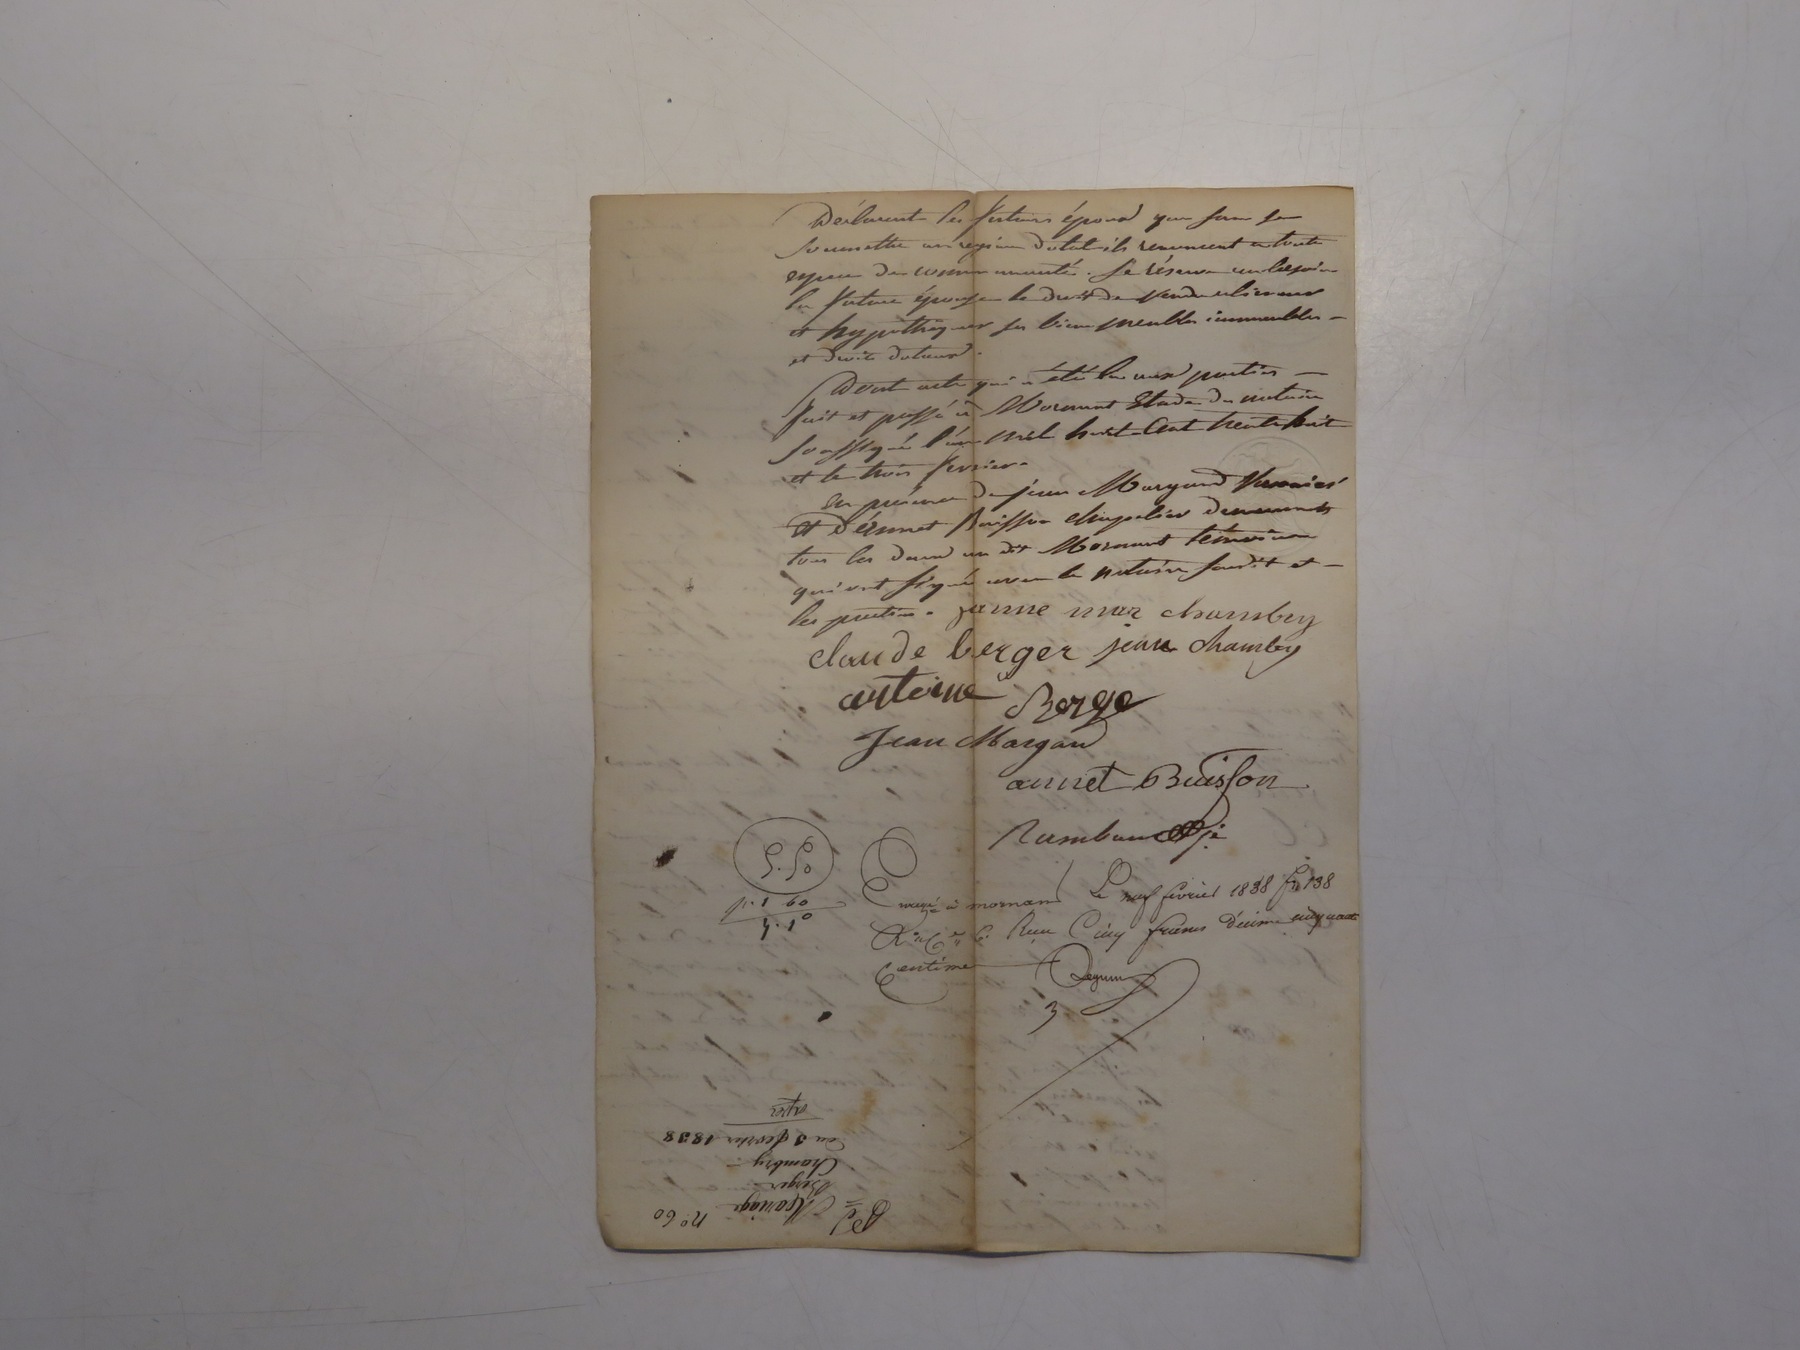 Déclarent les futurs époux que sans se
soumettre au régime dotal ils renoncent a toute
espece de communauté. Se réserve au besoin
la future épouse le droit de vendre aliener
et hypothéquer ses biens meubles immeubles
et droits dotaux.
Dont acte qui a été lu aux parties
fait et passé à Mornant Etude du notaire
soussigné l'an mil huit cent trente huit
et le trois fevrier.
En présence de jean Margand
et d'énnet Buisson chapelier demeurants
tous les deux au dit Mornant témoins
qui ont signé avec le notaire susdit et
les parties. janne mar chambry
claude berger jean Chambry
antoine Berge
Jean Margand
annet Buisson
Rambaud
5.50
60
Enregé à mornant Le neuf fevrier 1838 fo 138
Reçu Cinq francs décime cinquante
Centime
3
No 60
Mariage
Berger
Chambry
du 3 fevrier 1838